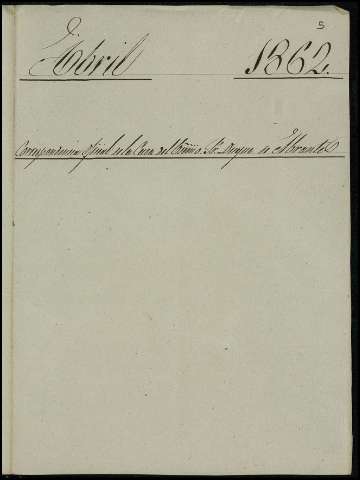 5
Abril 1862.
Correspondencia oficial de la Casa del Exmo. Sr. Duque de Abrantes